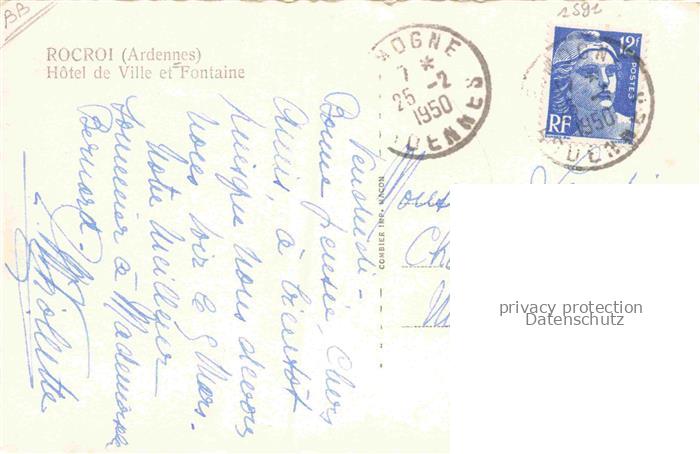 BB
2591
ROCROI (Ardennes)
Hôtel de Ville et Fontaine
MOGNE
7 *
25 -2
1950
ARDENNES
12F
POSTES
RF
1950
COMBIER IMP. MACON
Vendredi -
Bonne pensée, Chers
Amis, à bientôt
puisque nous devons
nous voir le 5 Mars.
Notre meilleur
souvenir à
Bernard.
privacy protection
Datenschutz